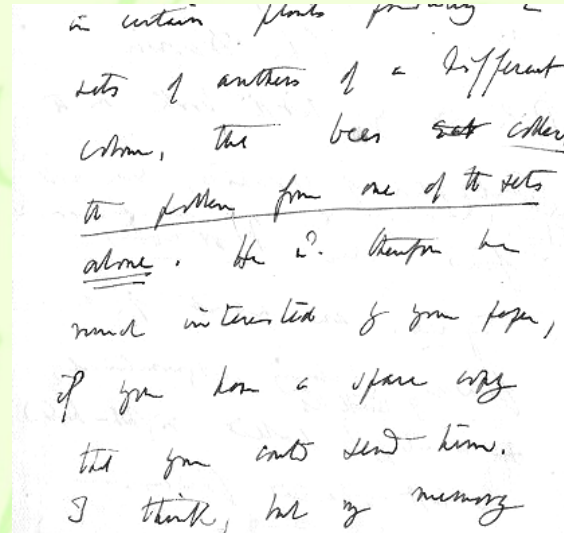 in certain plants producing 2
sets of anthers of a different
colour, the bees collect
the pollen from one of the sets
alone. He wd. therefore be
much interested by your paper,
if you have a spare copy
that you could send him.
I think, but my memory